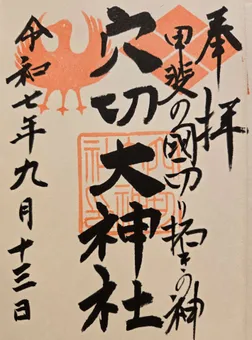 奉拝
甲斐の國切り拓きの神
穴切大神社
令和七年九月十三日